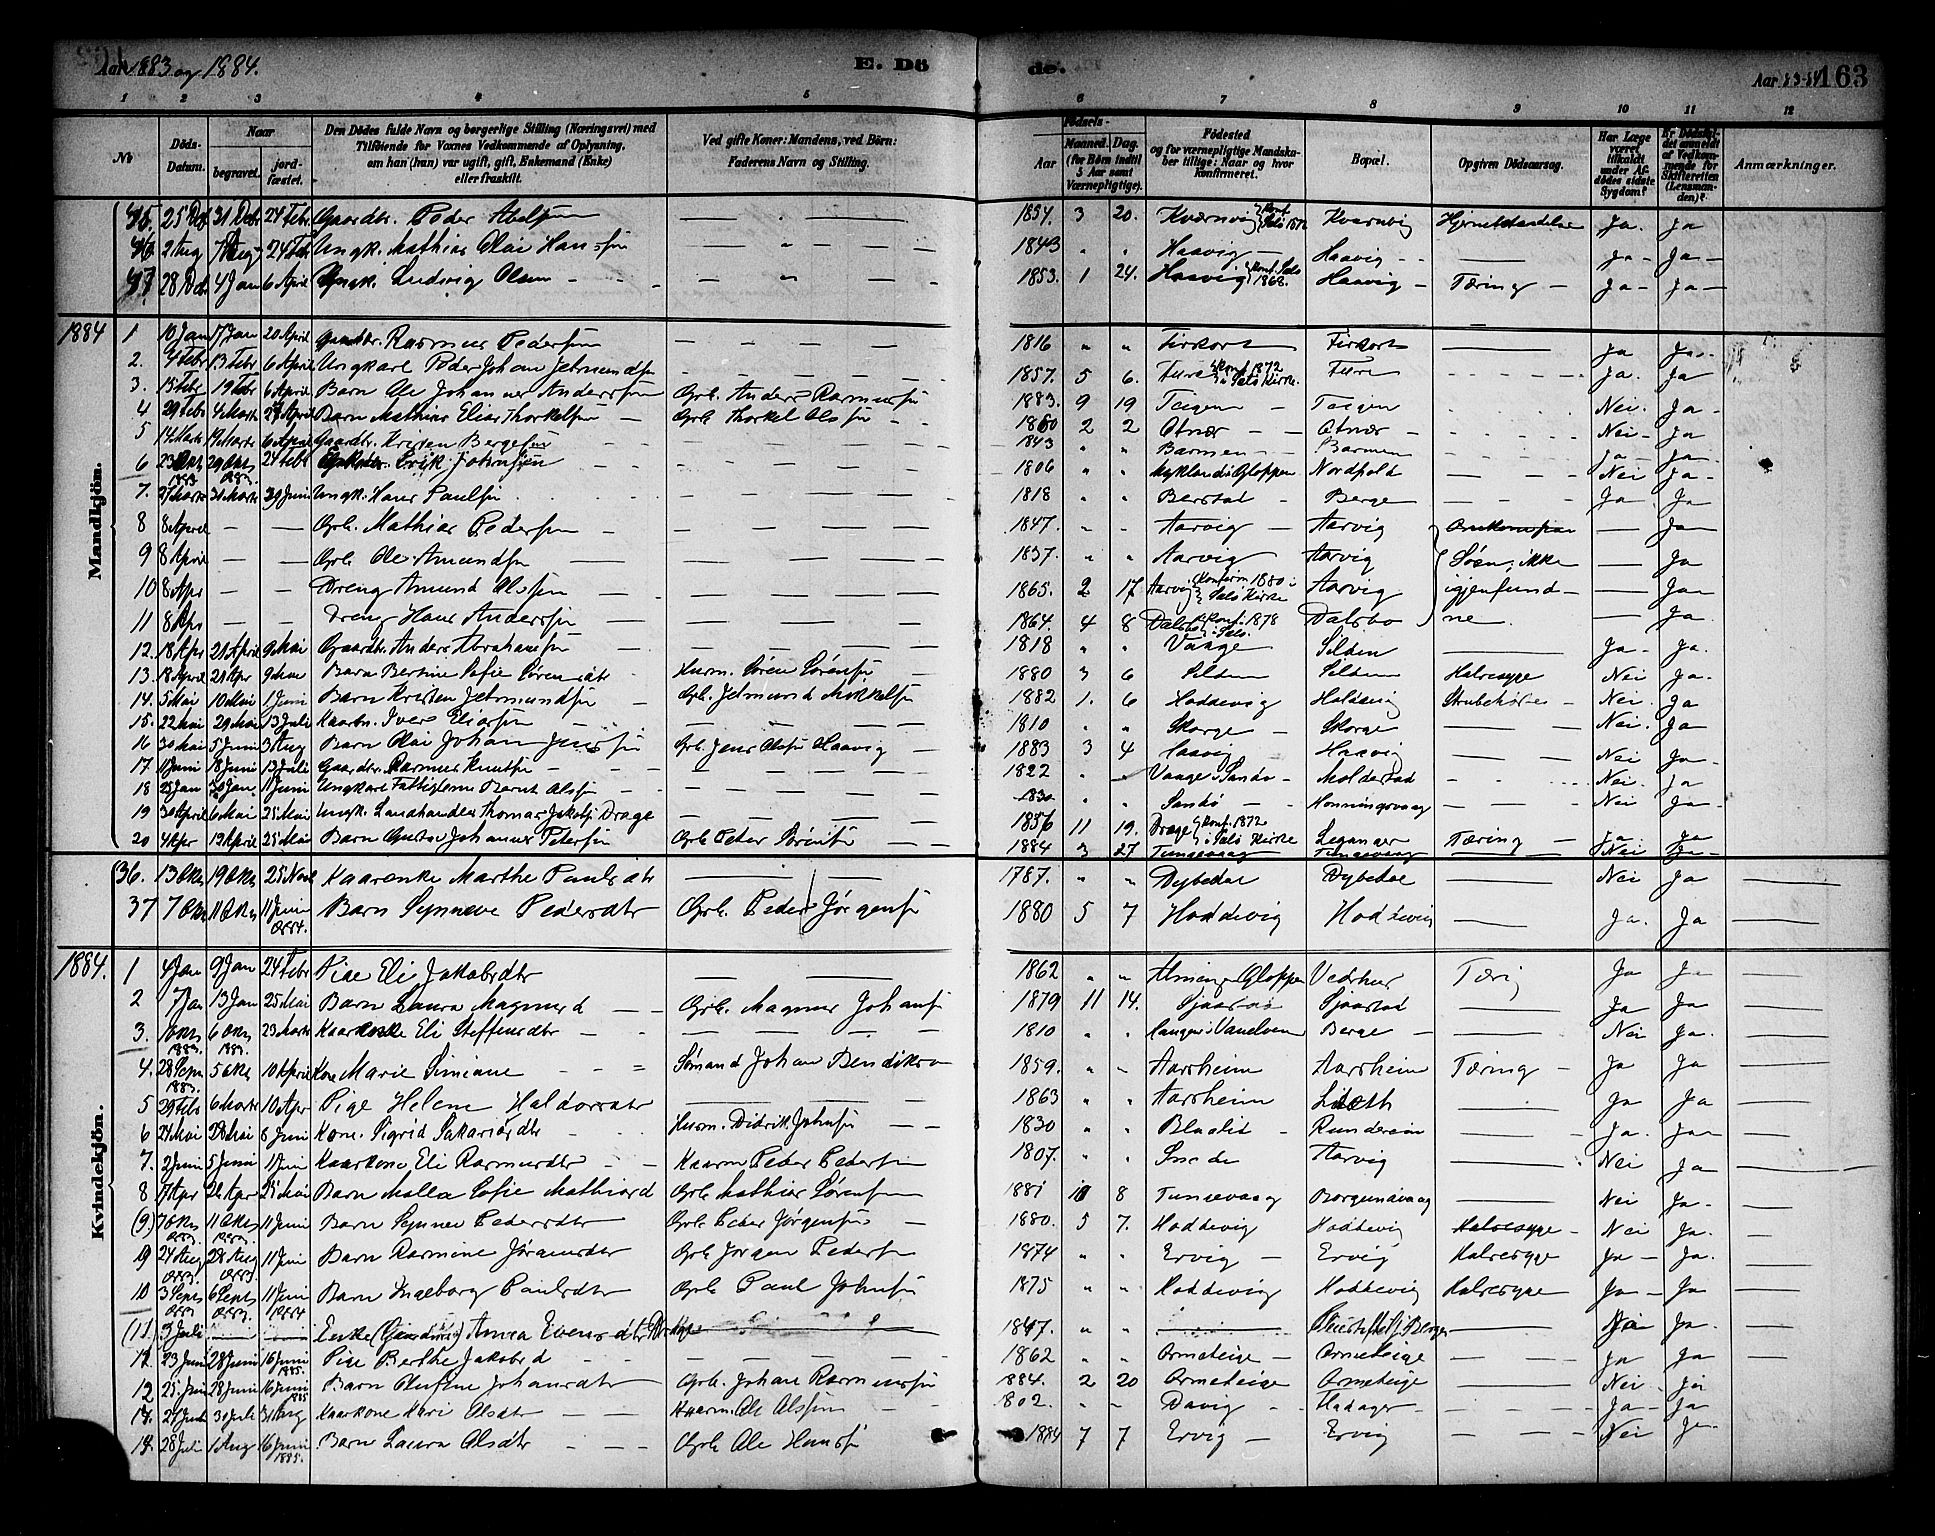 Aar 1883 og 1884.
E. Dö
de.
Aar 83-84
163
1 2 3 4 5 6 7 8 9 10 11 12
No
Döds-Datum.
Naar
begravet.
jord-fæstet.
Den Dödes fulde Navn og borgerlige Stilling (Næringsvei) med
Tilföiende for Voxnes Vedkommende af Oplysning,
om han (hun) var ugift, gift, Enkemand (Enke)
eller fraskilt.
Ved gifte Koner: Mandens, ved Börn:
Faderens Navn og Stilling.
Födsels-
Aar
Maaned. Dag.
(for Börn indtil
5 Aar samt
Værnepligtige).
Födested
og for værnepligtige Mandska-
ber tillige: Naar og hvor
konfirmeret.
Bopæl.
Opgiven Dödsaarsag.
Har Læge
været
tilkaldt
under Af-
dödes sidste
Sygdom?
Er Dödsfal-
det anmeldt
af Vedkom-
mende for
Skifteretten
(Lensman-
den)?
Anmærkninger.
Mandkjön.
45. 25 31 Dcbr 24 Febr Gaardbr. Peder Abelsen 1857 3 20. Kværnvig Kværnvig Ja Ja
46 2 Aug 7 Aug 24 Febr Ungk. Mathias Olai Hansen 1843 " " Haavig Haavig Ja Ja
47 28 4 Jan 6 April Ungk. Ludvig Olsen 1853. 1 24. Haavig Konf. Selø 1868. Haavig Tæring Ja Ja
1884 1 10 Jan 17 Jan 20 April Gaardbr. Rasmus Pedersen 1816 " " Ja Ja
2. 4 Febr 13 Febr 6 April Ungkarl Peder Johan Jetmundsen 1857. 5 6. Fure Konf. 1872 i Selø Kirke. Fure Ja. Ja
3. 15 Febr 19 Febr 6 April Barn Ole Johannes Anderssøn Grb. Anders Rasmussen 1883. 9 19 Teigen Teigen Nei. Ja
4 29 Febr 4 Marts 27 April Barn Mathias Elias Thorkelsen Grb. Thorkel Olsen 1880 2 2 Otnær Otnær Nei Ja
5 14 Marts 19 Marts 6 April Gaardbr. Kristen Bergesen 1843 " " Barmen Barmen Ja Ja
6 23 Okt 1883 29 Okt 1883. 24 Febr Erik Johnsen 1806 " " Myklandi Gloppen Nordpold Nei Ja
7. 27 Marts 31 Marts 29 Juni Ungk. Hans Paulsen 1818 " " Berstad Berge Ja Ja
8 8 April Grb. Mathias Pedersen 1847. " " Aarvig Aarvig Omkom paa Ja
9 8 April Grb. Ole Amundsen 1837. " " Aarvig Aarvig Søen; ikke Ja
10 8 Apr Dreng Amund Olsen 1865. 2 17 Aarvig Konfirm 1880 i Selø Kirke Aarvig igjenfund- Ja
11 8 Apr Dreng Hans Anderssen 1864. 4 8 Dalsbø Konf. 1878 i Selø. Dalsbø ne. Ja
12. 18 Apr 21 April 9 Mai Gaardbr. Anders Abrahamsen 1818 " " Vaage Silden Ja Ja.
13. 18 April 21 Apr 9 Mai Barn Bertine Sofie Sørensdtr Husm. Søren Sørensen 1880 3 6 Silden Silden Halssyge Nei Ja.
14. 5 Mai 10 Mai 1 Juni Barn Kristen Jetmundsen Grb. Jetmund Mikkelsen 1882 1. 6 Hoddevig Hoddevig Strubehoste Nei. Ja
15. 22 Mai 29 Mai 13 Juli Kaarm. Iver Eliassen 1810 " " Skorge Skorge Nei. Ja
16 30 Mai 5 Juni 3 Aug Barn Olai Johan Jenssen Grb. Jens Olsen Haavig 1883 3 4 Haavig Haavig Nei Ja
17 11 Juni 18 Juni 13 Juli Gaardbr. Rasmus Knutsen 1822 " Vaage i Sandø Moldestad Nei. Ja
18 25 Jan 30 Jan 11 Juni Ungkarl Fattiglem Bernt Olsen 1830 " " Sandø Honningsvaag Nei Ja
19 30 April 6 Mai 25 Mai Ungk. Landhandler Thomas Jakobs. Drage 1856 11 19. Drage Konf. 1872 i Selø Kirke Leganger Tæring Ja Ja
20 4 Apr 13 April 25 Mai Barn Gustav Johannes Petersen Grb. Peter Sørensen 1884 3 27 Tungevaag Tungevaag Nei Ja
36. 13 Okt 19 Okt 25 Nov Kaarenke Marthe Paulsdtr 1787. " " Dybedal Dybedal Nei Ja
37 7 Okt 11 Okt 11 Juni 1884. Barn Synneve Pedersdtr Grb. Peder Jørgensen 1880 5 7 Hoddevig Hoddevig Ja. Ja
Kvindekjön.
1884. 1 4 Jan 9 Jan 24 Febr Pige Eli Jakobsdtr 1862 " " Gloppen Tæring Ja Ja
2 7 Jan 13 Jan 25 Mai Barn Laura Magnusd Grb. Magnus Johansen 1879 11 14. Sjaastad Sjaastad Ja Ja
3. Okt 1883 6 Okt 1883. 23 Marts Kaarkone Eli Steffensdtr 1810 " " Berge Nei Ja.
4. 28 Sept 1883. 5 Okt 10 April Kone Marie Simiane Sømand Johan Bendiksen 1859. " " Aarsheim Aarsheim Tæring Ja Ja
5 29 Febr 6 Marts 10 Apr Pige Helene Haldorsdtr 1863 " " Aarsheim Ja Ja
6 24 Mai 28 Mai 8 Juni Kone Sigrid Sakariasdtr Husm. Didrik Johnsen 1830 " " Runderein Ja. Ja
7. 2 Juni 5 Juni 11 Juni Kaarkone Eli Rasmusdtr Kaarm Peder Pedersen 1807. " " Aarvig Nei Ja
8 17 Apr 26 Apr 25 Mai Barn Malla Sofie Mathiasd Grb. Mathias Sørensen 1881 10 8 Tungevaag Borgundvaag Nei Ja
(9) 7 Okt 1883 11 Okt 1883. 11 Juni Barn Synnev Pedersdtr Grb. Peder Jørgensen 1880. 5 7. Hoddevig Hoddevig Halssyge Nei Ja.
9 24 Aug 1883 28 Aug 1883. 11 Juni Barn Rasmine Jørgensdtr Grb. Jørgen Pedersen 1874 " " Ervig Ervig Halssyge Ja Ja.
10 3 Sept 1883 6 Sept 1883. 11 Juni 1884 Barn Ingeborg Paulsdtr Grb. Paul Johnsen 1875 " " Hoddevig Hoddevig Halssyge Ja Ja
(11) 3 Juli Enke Anna Evensdtr 1847. " " Bergen Ja Ja.
12. 23 Juni 28 Juni 16 Juni 1885. Pige Berthe Jakobsd 1862 " " Ormeteige Ormeteige Ja Ja
12 25 Juni 28 Juni 16 Juni 1885 Barn Olufine Johansdtr Grb. Johan Rasmussen 1884. 2 20 Ormeteige Ormeteige Nei Ja
14. 27 Juli 30 Juli 31 Aug Kaarkone Kari Olsdtr Kaarm. Ole Olssen 1802. " " Davig Hadager Ja Ja
14. 28 Juli 1 Aug 16 Juni 1885. Barn Laura Olsdtr Grb Ole Hanssen 1884 7 7 Ervig Ervig Nei Ja